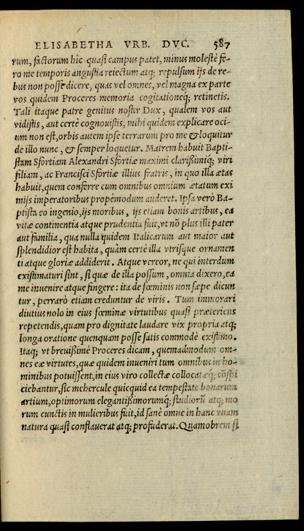 ELISABETHA VRB. DVC. 587
rum, factorum hic quasi campus patet, minus molestè fe-
ro me temporis angustia reiectum atq; repulsum ijs de re-
bus non posse dicere, quas vel omnes, vel magna ex parte
vos quidem Proceres memoria cogitationeq; retinetis.
Tali itaque patre genitus nostra Dux, qualem vos aut
vidistis, aut certè cognouistis, mihi quidem explicare oci-
um non est, orbis autem ipse terrarum pro me & loquitur
de illo nunc, & semper loquetur. Matrem habuit Bapti-
stam Sfortiam Alexandri Sfortiæ maximi clarissimiq; viri
filiam, ac Francisci Sfortiæ illius fratris, in quo illa ætas
habuit, quem conferre cum omnibus omnium ætatum exi
mijs imperatoribus propemodum auderet. Ipsa verò Ba-
ptista eo ingenio, ijs moribus, ijs etiam bonis artibus, ea
vitæ continentia atque prudentia fuit, vt nō plus illi pater
aut familia, qua nulla quidem Italicarum aut maior aut
splendidior est habita, quàm certe illa vtrisque ornamen
ti atque gloriæ addiderit. Atque vereor, ne qui interdum
existimaturi sint, si quæ de illa possum, omnia dixero, ea
me inuenire atque fingere: ita de fœminis non sæpe dicun
tur, perrarò etiam creduntur de viris. Tum immorari
diutius nolo in eius fœminæ virtutibus quasi præteriens
repetendis, quam pro dignitate laudare vix propria atq;
longa oratione quenquam posse satis commodè existimo.
Itaq; vt breuissimè Proceres dicam, quemadmodum om-
nes eæ virtutes, quæ quidem inueniri tum omnibus in ho-
minibus potuissent, in eius viro collectæ collocatæq; cōspi
ciebantur, sic mehercule quicquid ea tempestate bonarum
artium, optimorum elegantissimorumq; studiorū atq; mo
rum cunctis in mulieribus fuit, id sanè omne in hanc vnam
natura quasi conflauerat atq; profuderat. Quamobrem si